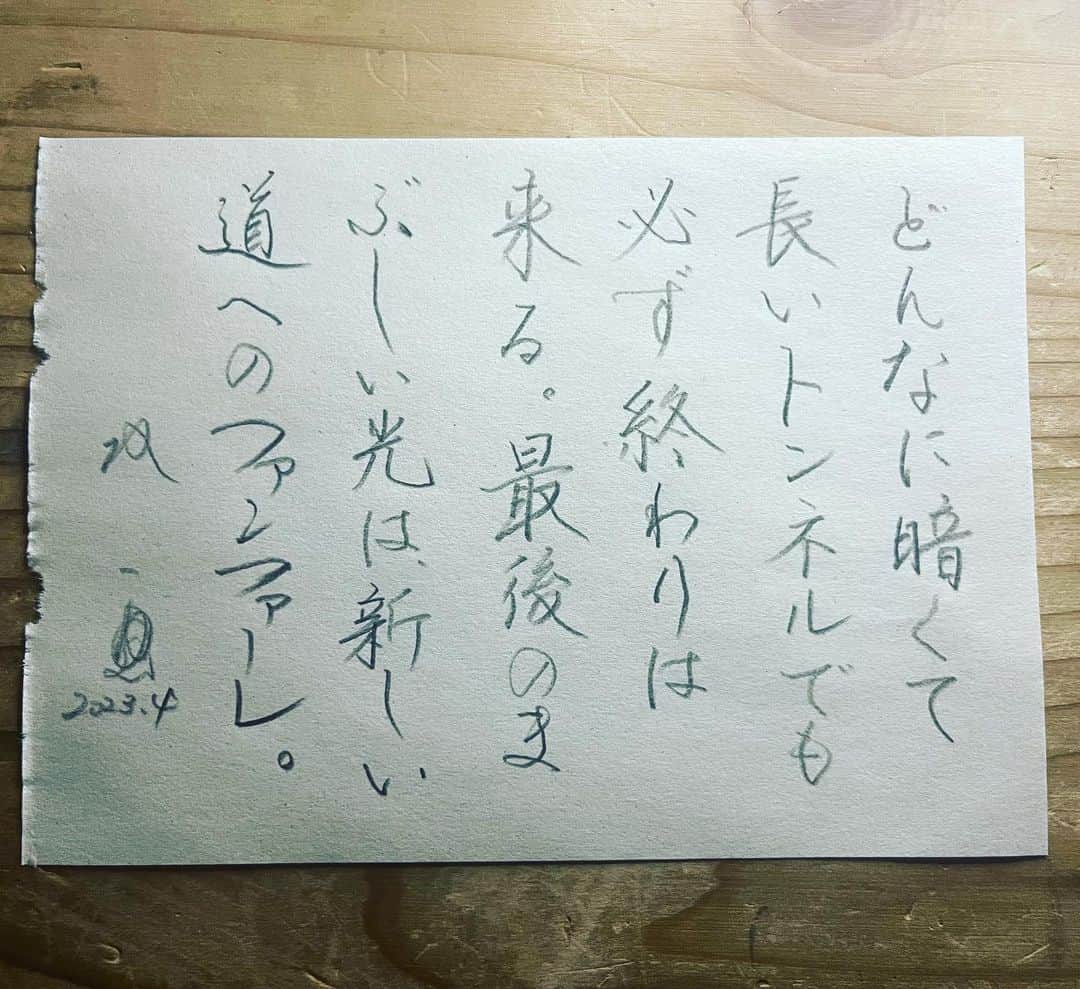 どんなに暗くて
長いトンネルでも
必ず終わりは
来る。最後のま
ぶしい光は、新しい
道へのファンファーレ。
2023.4